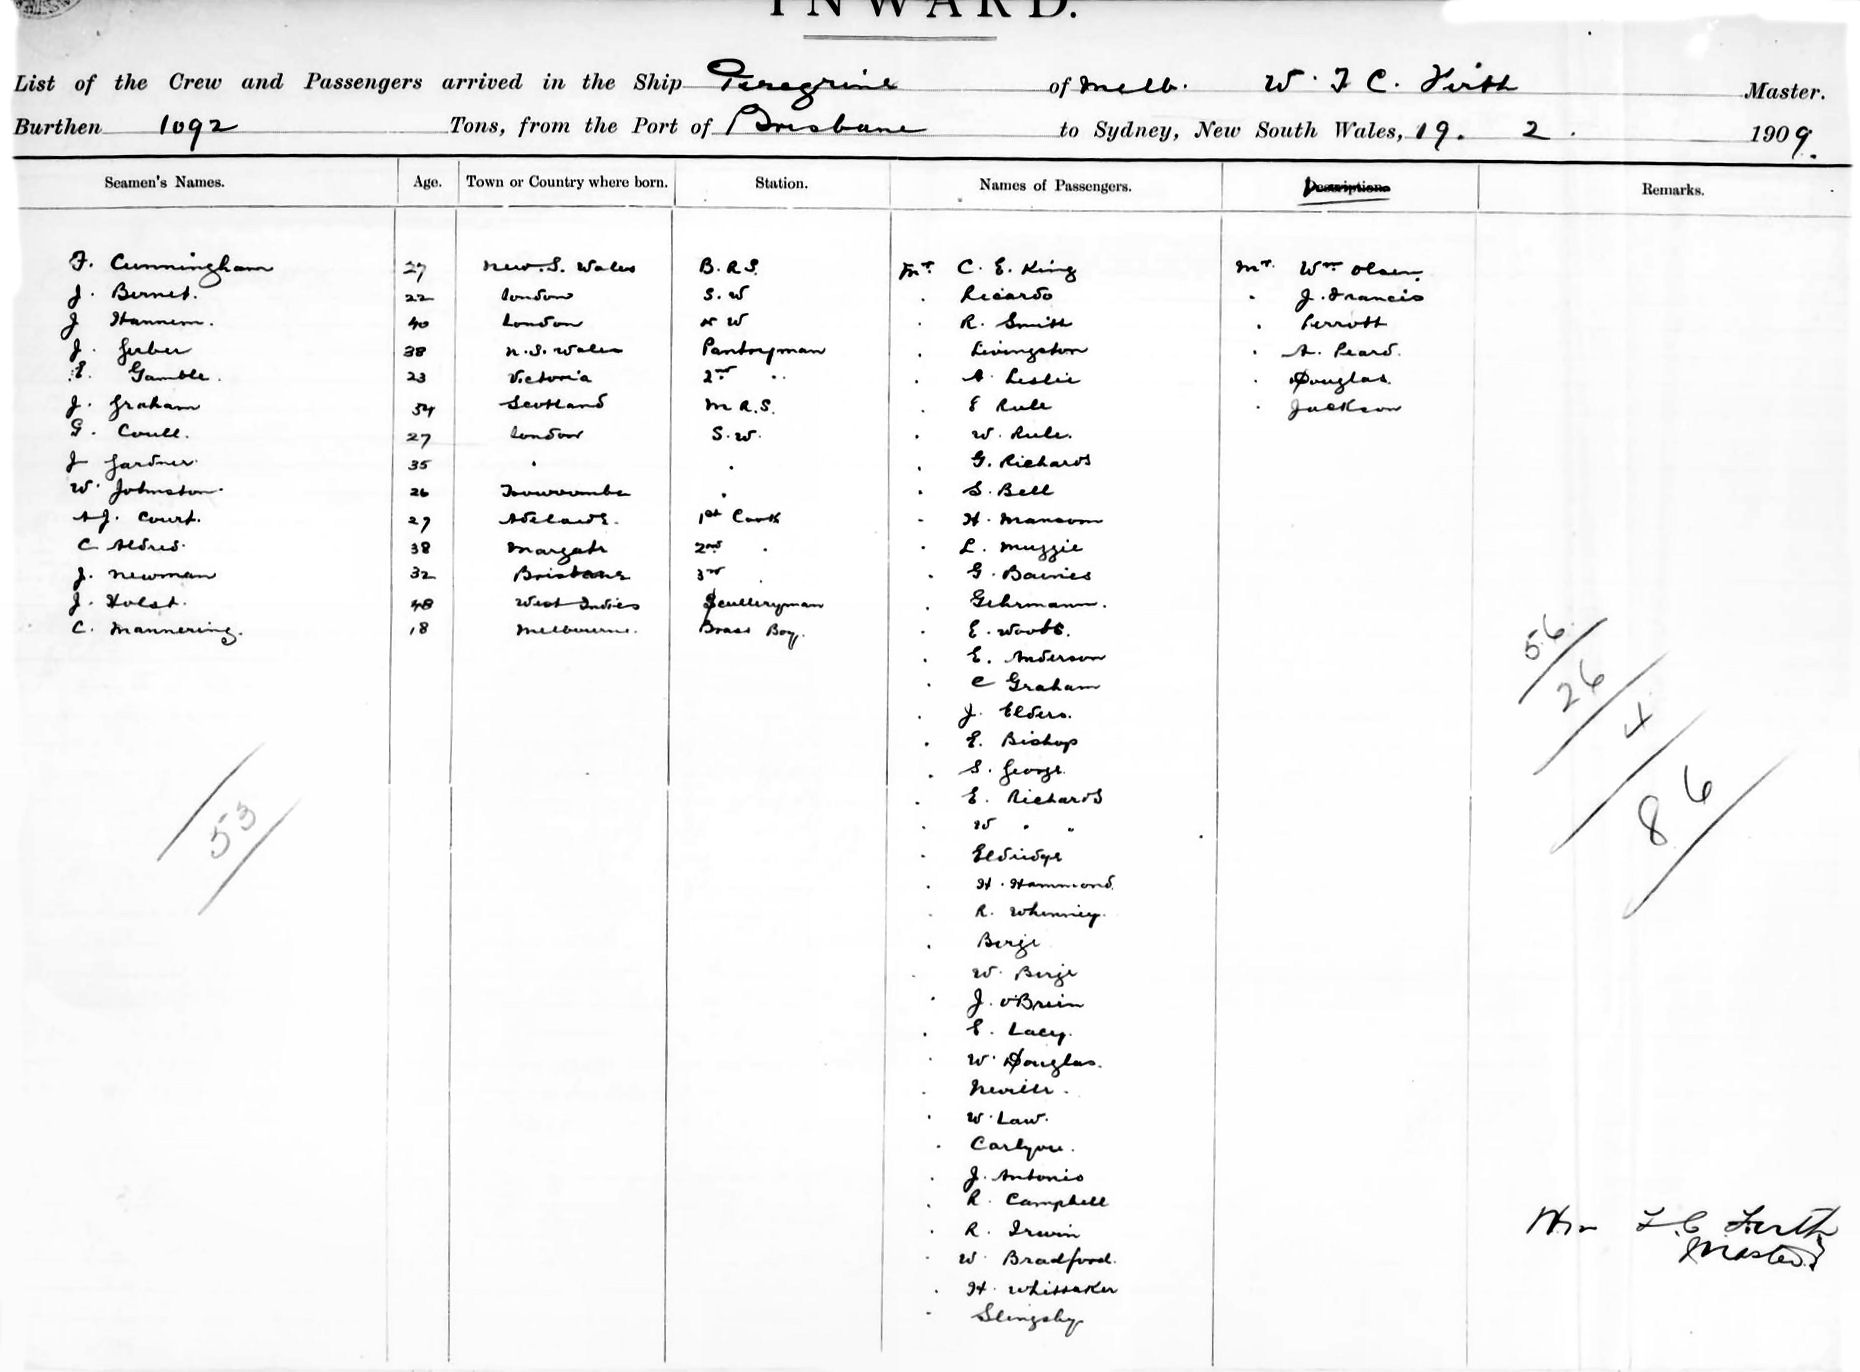 INWARD.
List of the Crew and Passengers arrived in the Ship Peregrine of Melb. W. F C. Firth Master.
Burthen 1092 Tons, from the Port of Brisbane to Sydney, New South Wales, 19. 2. 1909.
Seamen's Names. Age. Town or Country where born. Station. Names of Passengers. Descriptions Remarks.
F. Cunningham 27 New. S. Wales B.R.S. Mr C. E. King Mr Wm Olsen
J. Bernet. 22 London S. W . Ricardo . J. Francis
J Hannem. 40 London N W . R. Smith . Perrott
J. Gerber 38 N. S. Wales Pantryman . Livingston . A. Peard.
E. Gamble. 23 Victoria 2nd .. . A Leslie . Douglas.
J. Graham 54 Scotland M R.S. . E Rule . Jackson
G. Coull. 27 London S. W. . W. Rule.
J Gardner 35 . . . G. Richards
W. Johnston. 26 Toowoomba . . S. Bell
A J. Court. 27 Adelaide. 1st Cook . H. Mansom
C Aldred. 38 Margate 2nd . . L. Muggie
J. Newman 32 Brisbane 3rd . . G. Baines
J. Holst. 48 West Indies Sculleryman . Gehrmann.
C. Mannering. 18 Melbourne. Brass Boy. . E. Woods.
. E. Anderson
. C Graham
. J. Elders.
. E. Bishop
. S. George.
. E. Richards
. W " "
. Eldridge
. H. Hammond.
. R. Whinney.
. Berge
. W. Berge
. J. O'Brien
. E. Lacy.
. W. Douglas.
. Neville.
. W. Law.
. Carlyon.
. J. Antonio
. R. Campbell
. R. Irwin
. W. Bradford.
. H. Whittaker
. Slingsby
53
56
26
4
86
Wm F. C Firth
Master